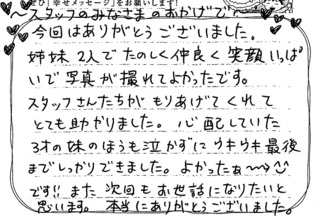 「幸せメッセージ」をお願いします!
〜スタッフのみなさまのおかげで〜
今回はありがとうございました。
姉妹2人でたのしく仲良く笑顔いっぱ
いで写真が撮れてよかったです。
スタッフさんたちがもりあげてくれて
とても助かりました。心配していた
3才の妹のほうも泣かずにウキウキ最後
までしっかりできました。よかったぁ〜
です!!また次回もお世話になりたいと
思います。本当にありがとうございました。